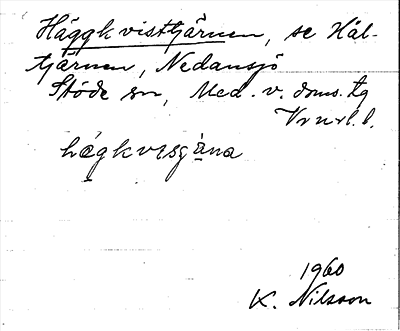 Häggkvisttjärnen, se Häl-
tjärnen, Nedansjö
Stöde sn, Med. v. doms. tg
Vrnrl. l.
hägkvisgäna
1960
K. Nilsson